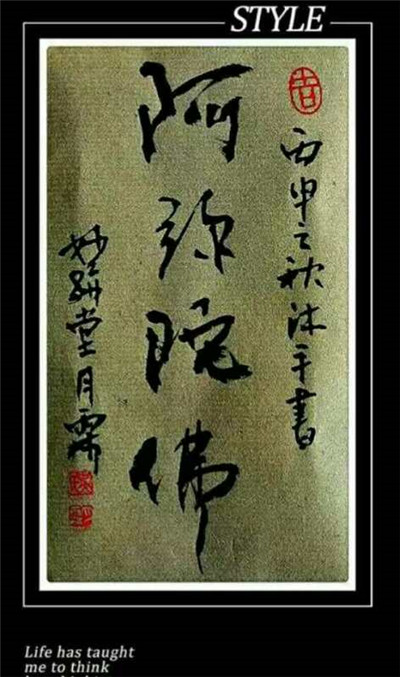 STYLE
丙申之秋沐手書
阿弥陀佛
妙研堂月霖
Life has taught
me to think